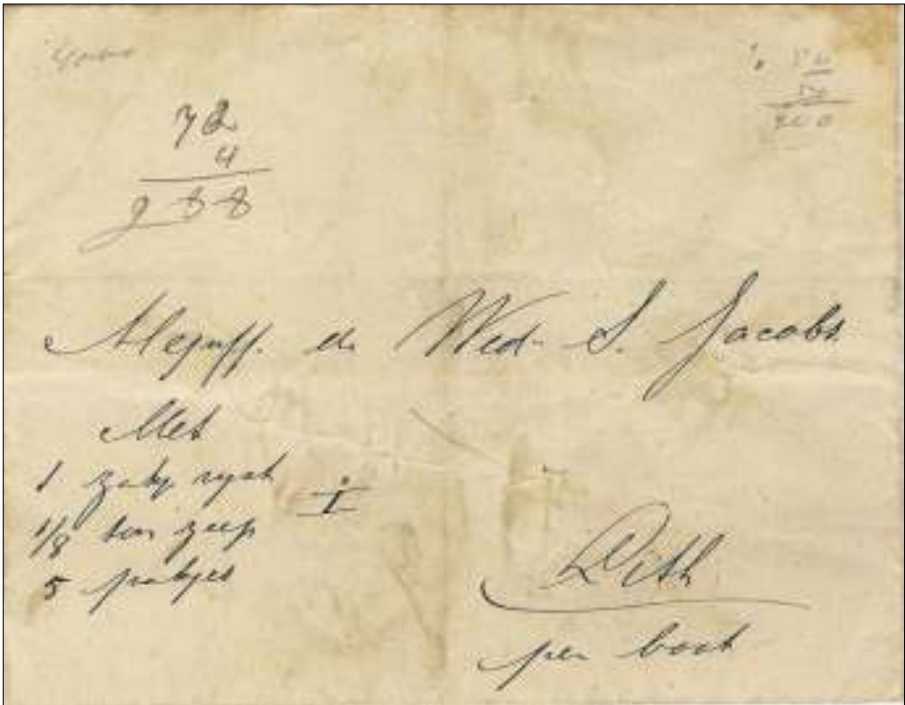 72
4
288
Mejuff. de Wed. S. Jacobs
Met
1 zakje ryst
1/8 ton zeep
5 pakjes
Lith
per boot